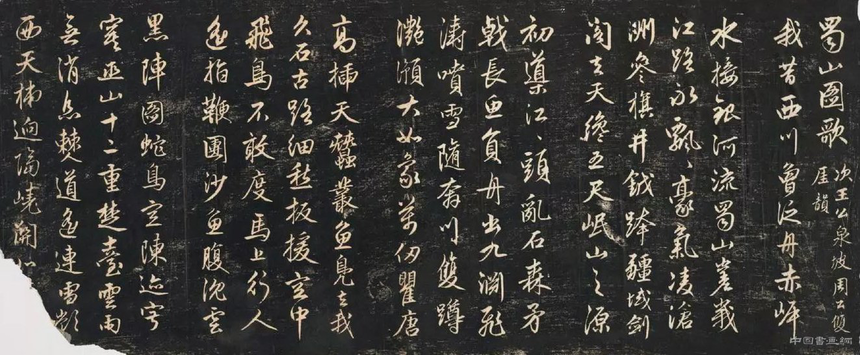 蜀山圖歌
次王公泉坡周公雙
厓韻
我昔西川曾泛舟赤岬
水接銀河流蜀山嵳峩
江路永飄〻豪氣凌滄
洲參旗井鉞跨疆域劍
閣去天纔五尺岷山之源
初導江〻頭亂石森矛
戟長魚負舟出九淵飛
濤噴雪隨奔川雙蹲
灔澦大如象萬仞瞿唐
高插天蠶叢魚鳧去我
久石古路細愁扳援空中
飛鳥不敢度馬上行人
遙指鞭團沙魚腹沈雲
黑陣圖蛇鳥空陳迹
巫山十二重楚臺雲雨
無消息僰道遙連雪嶺
西天梯迥隔嶢關
中国書画網